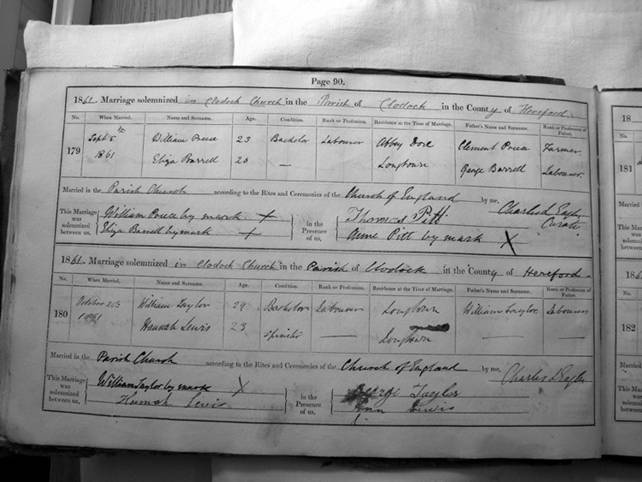 Page 90.
1861. Marriage solemnized in Clodock Church in the Parish of Clodock in the County of Hereford
No. When Married. Name and Surname. Age. Condition. Rank or Profession. Residence at the Time of Marriage. Father's Name and Surname. Rank or Profession of Father.
179 Sept 5th 1861 William Preece 23 Bachelor Labourer Abbey Dore Clement Preece Farmer
Eliza Barrell 20 — Longtown George Barrell Labourer
Married in the Parish Church according to the Rites and Ceremonies of the Church of England by me, Charles Curate
This Marriage was solemnized between us, William Preece by mark X
Eliza Barrell by mark X
in the Presence of us, Thomas Pitt
Anne Pitt by mark X
1861. Marriage solemnized in Clodock Church in the Parish of Clodock in the County of Hereford
No. When Married. Name and Surname. Age. Condition. Rank or Profession. Residence at the Time of Marriage. Father's Name and Surname. Rank or Profession of Father.
180 October 1861 William Taylor 29 Bachelor Labourer Longtown William Taylor Labourer
Hannah Lewis 23 Spinster — Longtown — —
Married in the Parish Church according to the Rites and Ceremonies of the Church of England by me, Charles
This Marriage was solemnized between us, William Taylor by mark X
Hannah Lewis
in the Presence of us, Taylor
Ann Lewis
No.
181
182